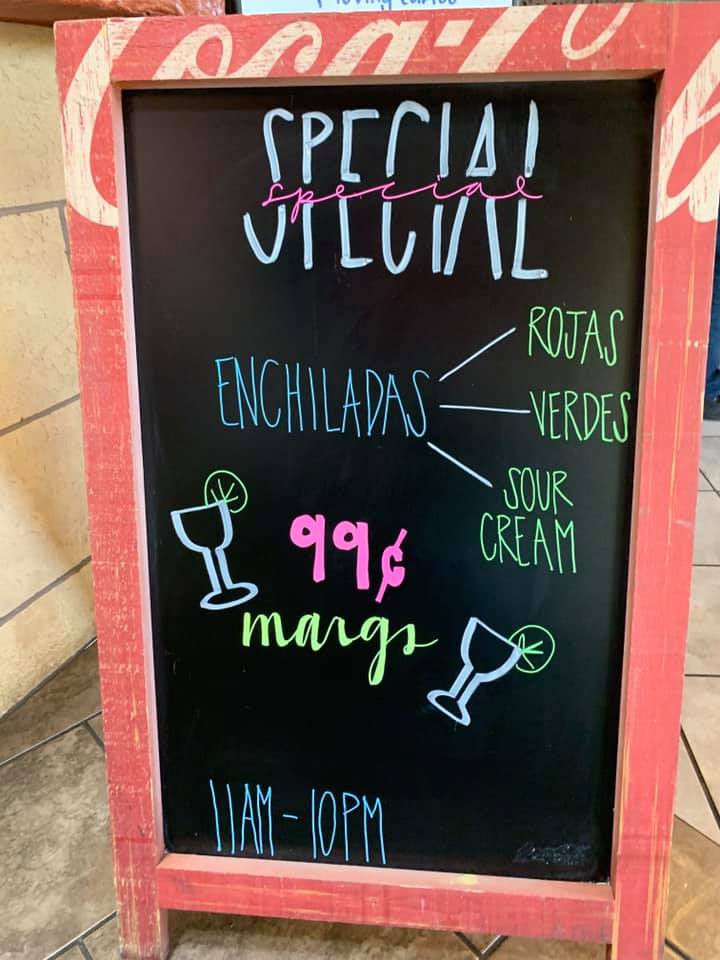 Coca-Co
SPECIAL
special
ENCHILADAS
ROJAS
VERDES
SOUR
CREAM
99¢
margs
11AM-10PM